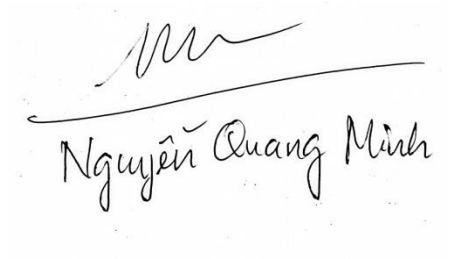 Nguyễn Quang Minh